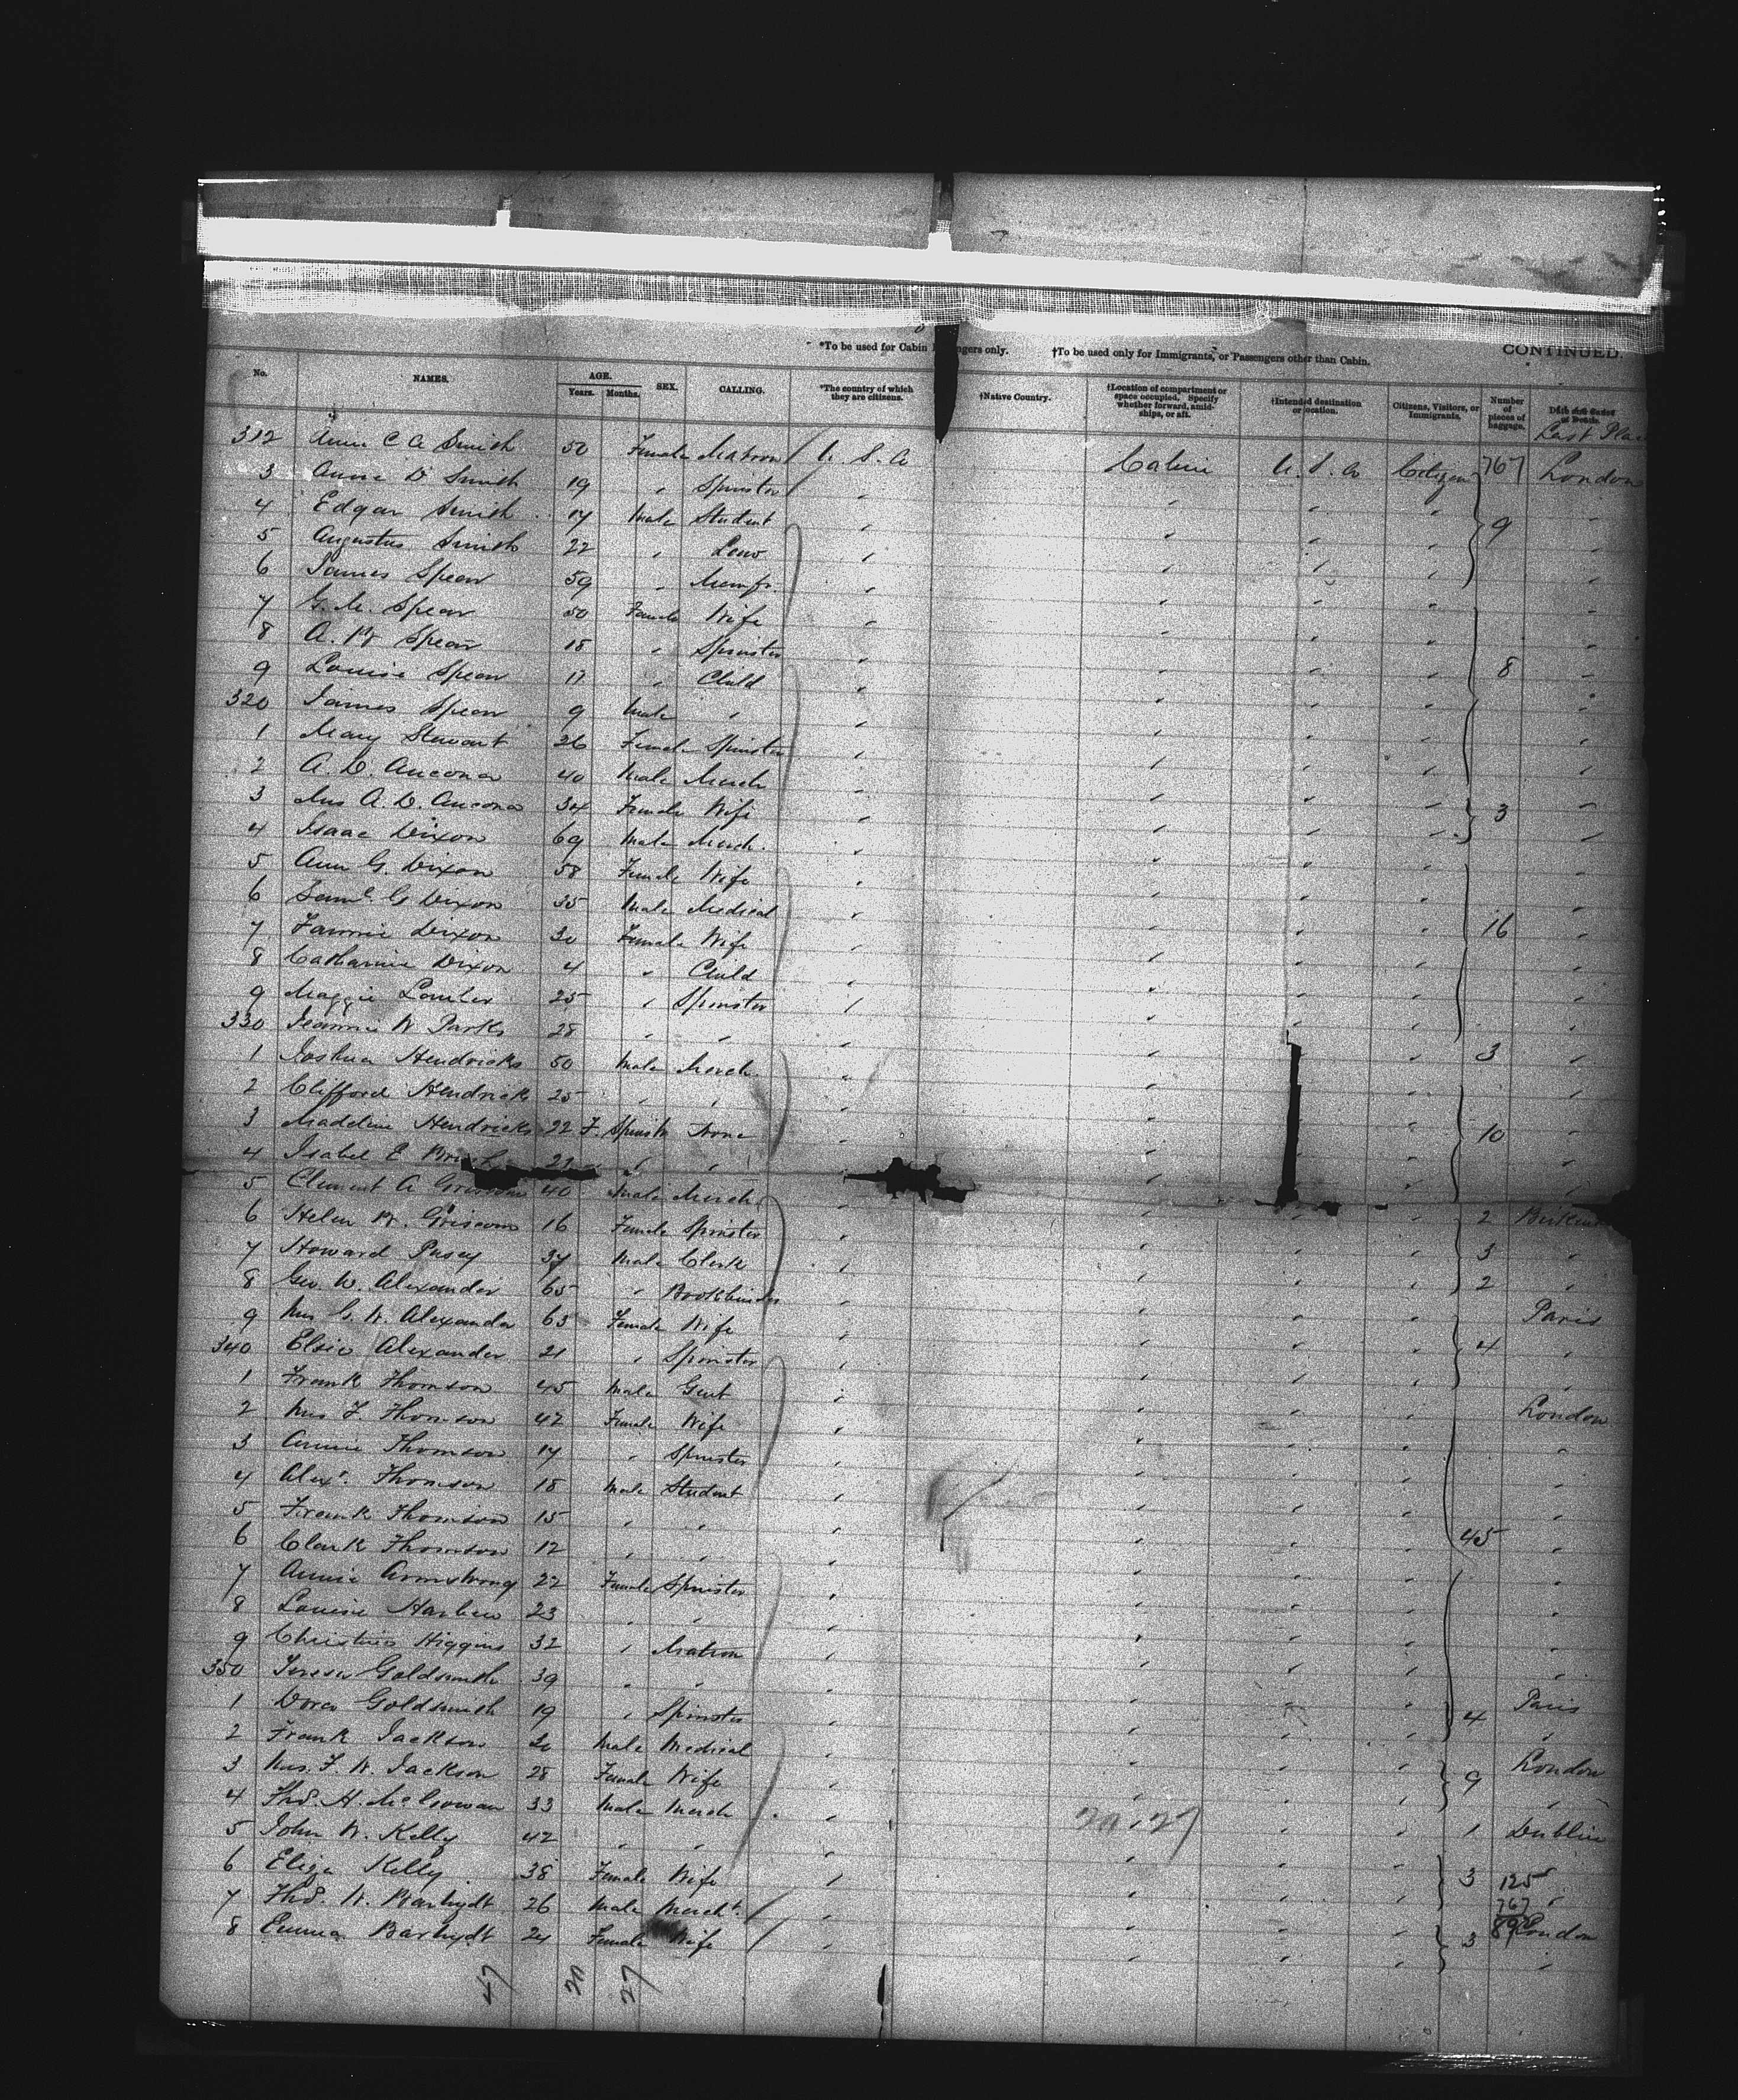 *To be used for Cabin ngers only. †To be used only for Immigrants, or Passengers other than Cabin. CONTINUED.
No. NAMES. AGE. Years. Months. SEX. CALLING. *The country of which they are citizens. †Native Country. †Location of compartment or space occupied. Specify whether forward, amidships, or aft. †Intended destination or location. Citizens, Visitors, or Immigrants. Number of pieces of baggage. Last Plac
312 C A Smith 50 Female Matron U. S. A Cabin U. S. A Citizen 767 London
3 Annie D Smith 19 " Spinster " " " " "
4 Edgar Smith 17 Male Student " " " " 9 "
5 Augustus Smith 22 " " " " " "
6 James Spear 59 " " " " " "
7 G. M. Spear 50 Female Wife " " " " "
8 A. Spear 18 " Spinster " " " " 8 "
9 Louise Spear 11 " Child " " " " "
320 James Spear 9 Male " " " " " "
1 Mary Stewart 26 Female Spinster " " " " "
2 A. D. Ancona 40 Male Merch " " " " 3 "
3 Mrs A. D. Ancona 34 Female Wife " " " " "
4 Isaac Dixon 69 Male Merch. " " " " "
5 Ann G. Dixon 58 Female Wife " " " " "
6 Saml. G Dixon 35 Male Medical " " " " 16 "
7 Fannie Dixon 30 Female Wife " " " " "
8 Catharine Dixon 4 " Child " " " " "
9 Maggie 25 " Spinster " " " " "
330 Jeannie W Parks 28 " " " " " " 3 "
1 Joshua Hendricks 50 Male Merch. " " " " "
2 Clifford Hendricks 25 " " " " " " "
3 Madeline Hendricks 22 F. Spinstr None " " " " 10 "
4 Isabel E " " " " " " "
5 Clement A Griscom 40 Male Merch. " " " " 2
6 Helen Griscom 16 Female Spinster " " " " 3 "
7 Howard Pusey 37 Male Clerk " " " " 2 "
8 Geo. W. Alexander 65 " Bookbinder " " " " Paris
9 Mrs G. W. Alexander 63 Female Wife " " " " 4 "
340 Elsie Alexander 21 " Spinster " " " " "
1 Frank Thomson 45 Male Gent " " " " London
2 Mrs F. Thomson 42 Female Wife " " " " "
3 Annie Thomson 17 " Spinster " " " " "
4 Alexr. Thomson 18 Male Student " " " " "
5 Frank Thomson 15 " " " " " " 45 "
6 Clark Thomson 12 " " " " " " "
7 Annie Armstrong 22 Female Spinster " " " " "
8 Louise 23 " " " " " " "
9 Christina Higgins 32 " Matron " " " " "
350 Teresa Goldsmith 39 " " " " " " 4 Paris
1 Dora Goldsmith 19 " Spinster " " " " "
2 Frank Jackson 30 Male Medical " " " " 9 London
3 Mrs. F. W. Jackson 28 Female Wife " " " " "
4 Thos. H. McGowan 33 Male Merch " " " " 1 Dublin
5 John W. Kelly 42 " " " " " " 3 125
6 Eliza Kelly 38 Female Wife " " " " 767 "
7 Thos. W. Barhydt 26 Male Mercht. " " " " 3 89 London
8 Emma Barhydt 24 Female Wife " " " " "
20 27
47 20 27